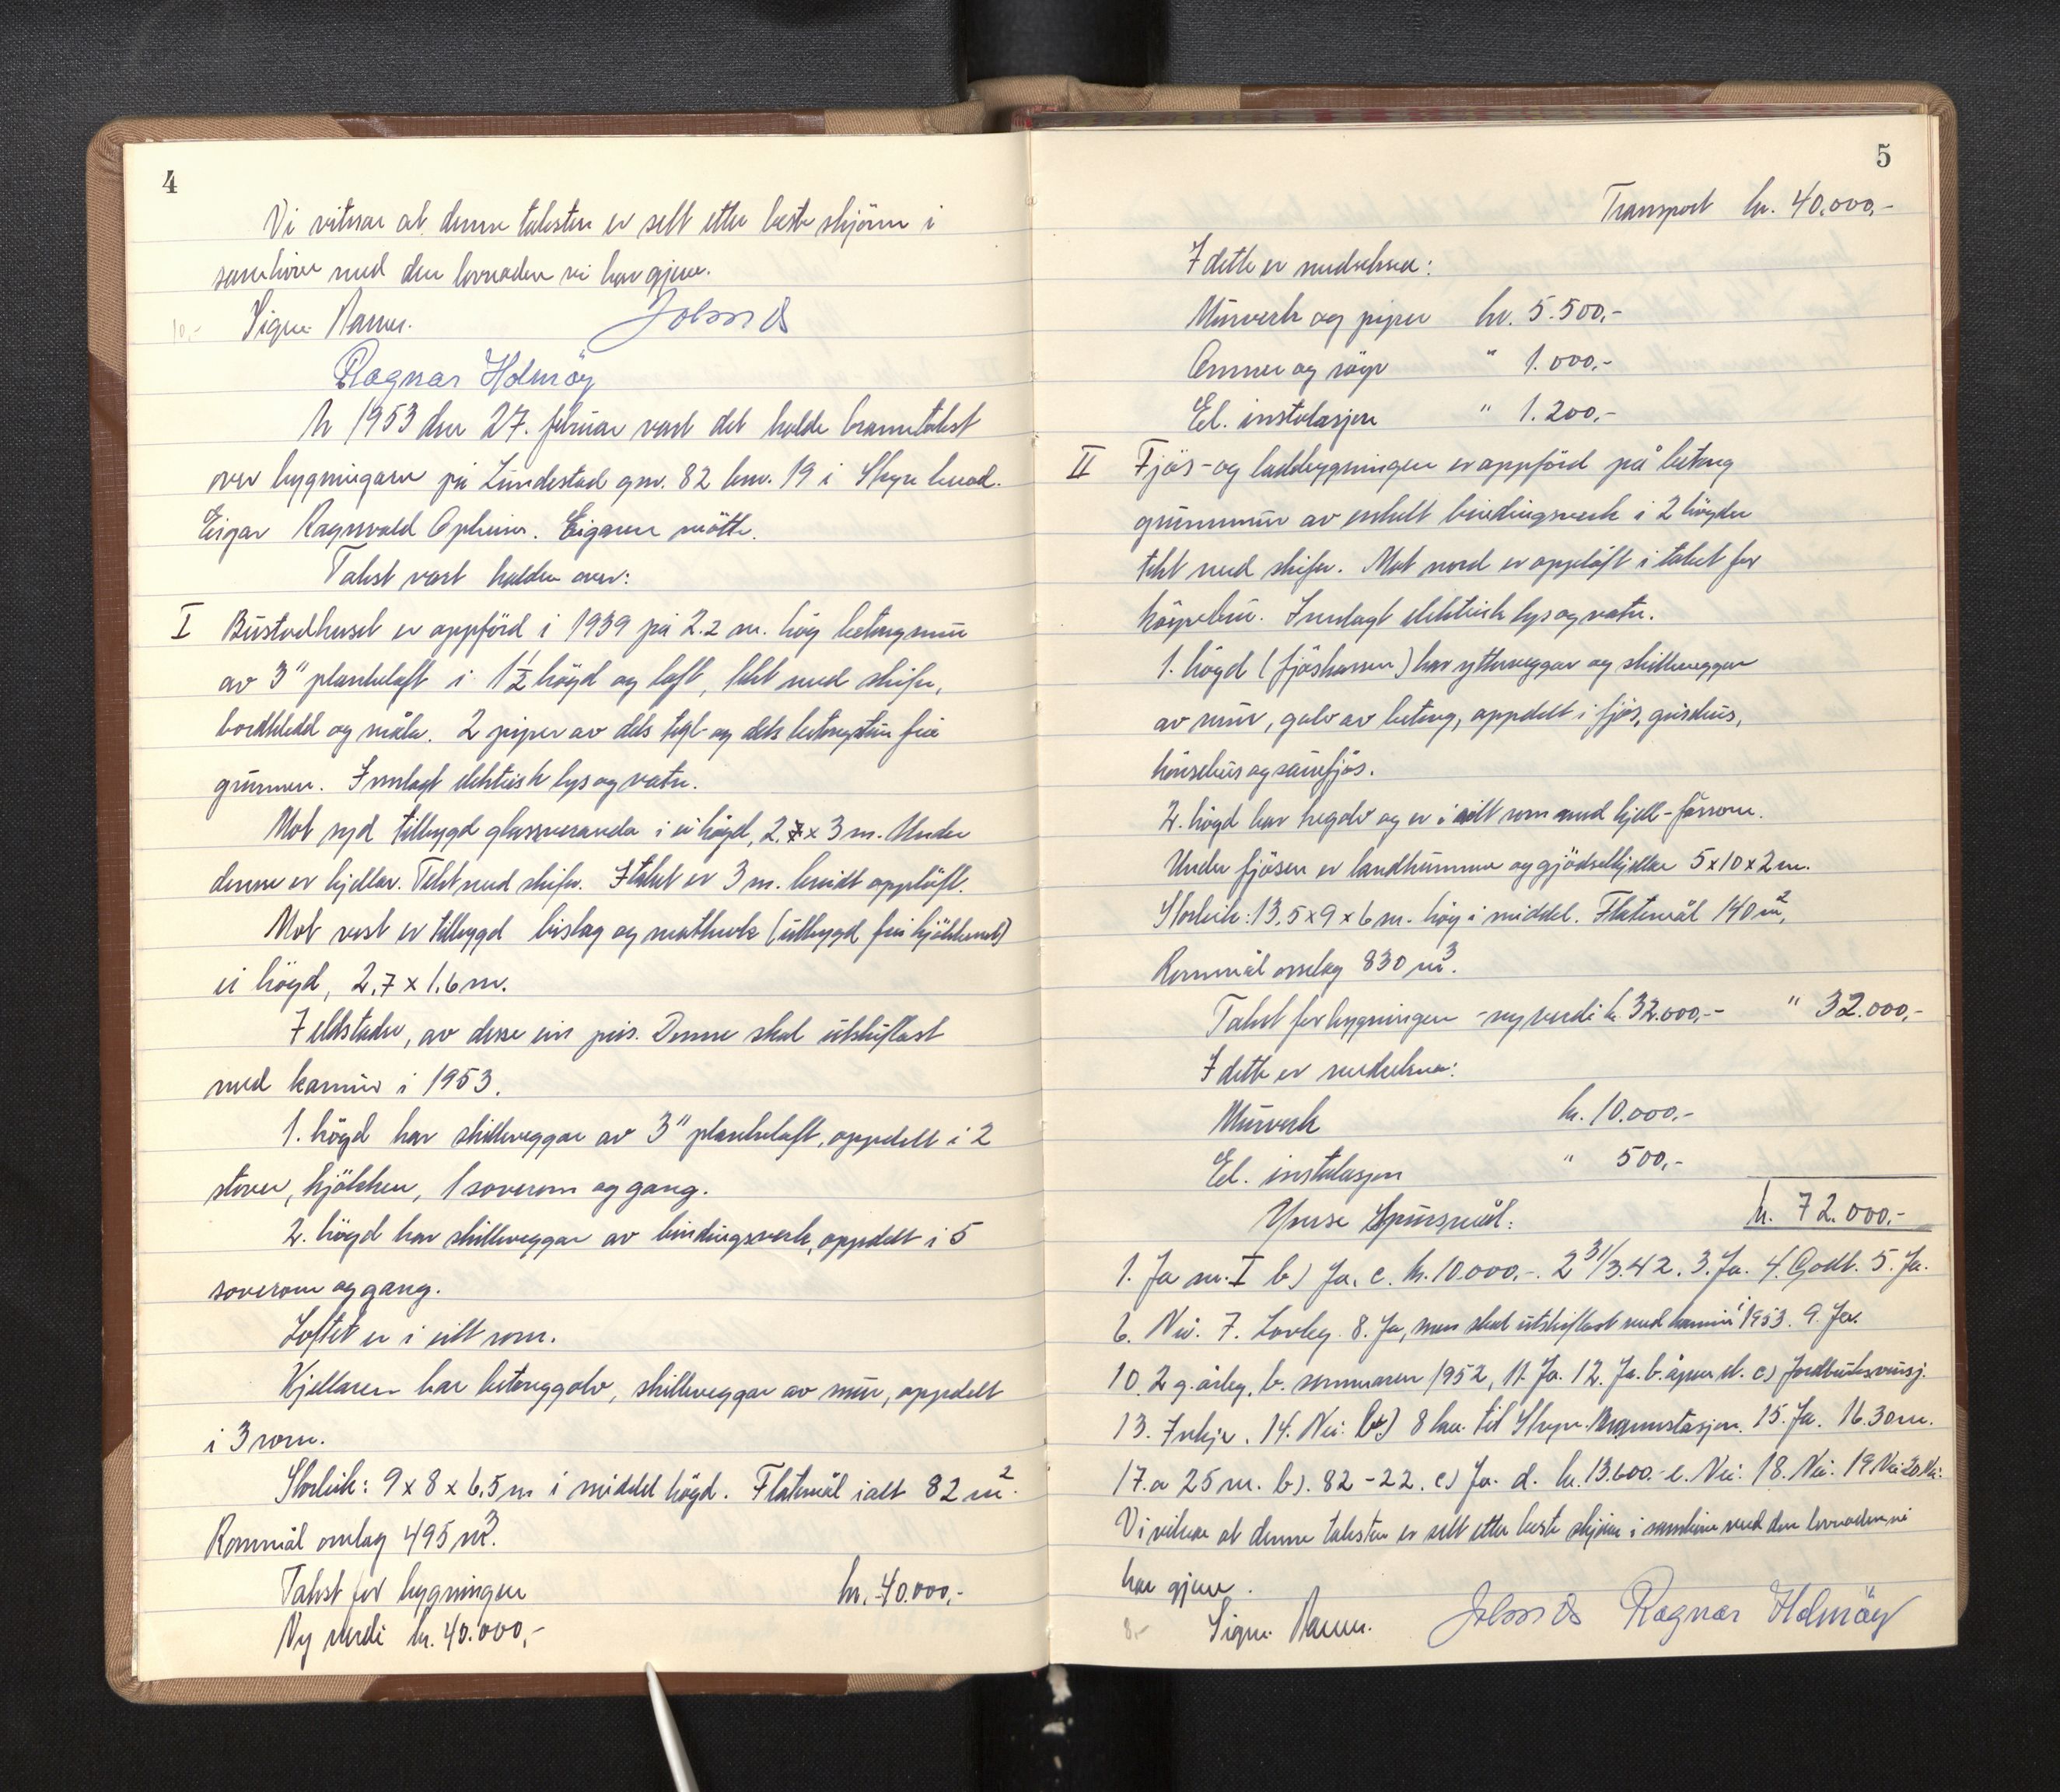 4
Vi vitnar at denne taksten er sett etter beste skjönn i
samhöve med den lovnaden vi har gjeve.
10,-
Ragnar Holmöy
År 1953 den 27. februar vart det halde branntakst
over bygningane på Lundestad gnr. 82 bnr. 19 i Stryn herad.
Eigar Ragnvald Opheim. Eigaren mötte.
Takst vart halden over:
I Bustadhuset er oppförd i 1939 på 2.2 m. hög betongmur
av 3" plankelaft i 1 1/2 högd og loft, tekt med skifer,
bordkledd og måla. 2 piper av dels tegl- og dels betongstein frå
grunnen. Innlagt elektrisk lys og vatn.
Mot syd tilbygd glassveranda i ei högd, 2.7 x 3 m. Under
denne er kjellar. Tekt med skifer. I taket er 3 m. breidt opplöft.
Mot vest er tilbygd bislag og matbu (utbygd frå kjökkenet)
ei högd, 2.7 x 1.6 m.
7 eldstader, av desse ein peis. Denne skal utskiftast
med kamin i 1953.
1. högd har skilleveggar av 3" plankelaft, oppdelt i 2
stover, kjökken, 1 soverom og gang.
2. högd har skilleveggar av bindingsverk, oppdelt i 5
soverom og gang.
Loftet er i eitt rom.
Kjellaren har betonggolv, skilleveggar av mur, oppdelt
i 3 rom.
Storleik: 9 x 8 x 6,5 m i middel högd. Flatemål ialt 82 m².
Rommål omlag 495 m³.
Takst for bygningen kr. 40.000,-
Ny verdi kr. 40.000,-
5
Transport kr. 40.000,-
I dette er medrekna:
Murverk og piper kr. 5.500,-
Omner og röyr " 1.000,-
El. instalasjon " 1.200,-
II Fjös- og ladebygningen er oppförd på betong
grunnmur av enkelt bindingsverk i 2 högder
tekt med skifer. Mot nord er opplöft i taket for
köyrebru. Innlagt elektrisk lys og vatn.
1. högd (fjöshusen) har ytterveggar og skilleveggar
av mur, golv av betong, oppdelt i fjös, grisehus,
hönsehus og sauefjös.
2. högd har tregolv og er i eitt rom med hjell-
Under fjösen er landkummar og gjödselkjellar 5 x 10 x 2 m.
Storleik: 13,5 x 9 x 6 m. hög i middel. Flatemål 140 m².
Rommål omlag 830 m³.
Takst for bygningen - ny verdi kr. 32.000,- " 32.000,-
I dette er medrekna:
Murverk kr. 10.000,-
El. instalasjon " 500,-
Ymse Spursmål: kr. 72.000,-
1. Ja nr. I b) Ja. c. kr. 10.000,-. 2 31/3.42. 3. Ja. 4. Godt. 5. Ja.
6. Nei. 7. Lovleg. 8. Ja, men skal utskiftast med kamin i 1953. 9. Ja.
10. 2 g. årleg. b. sommaren 1952, 11. Ja. 12. Ja. b. åpen c) Jordbruksmasj.
13. Inkje. 14. Nei: b) 8 km. til Stryn Brannstasjon. 15. Ja. 16. 30 m.
17. a 25 m. b). 82 - 22. c) Ja. d. kr. 13.600.- e. Nei. 18. Nei. 19. Nei 20. Nei.
Vi vitnar at denne taksten er sett etter beste skjönn i samhöve med den lovnaden vi
har gjeve.
8,- Ragnar Holmöy